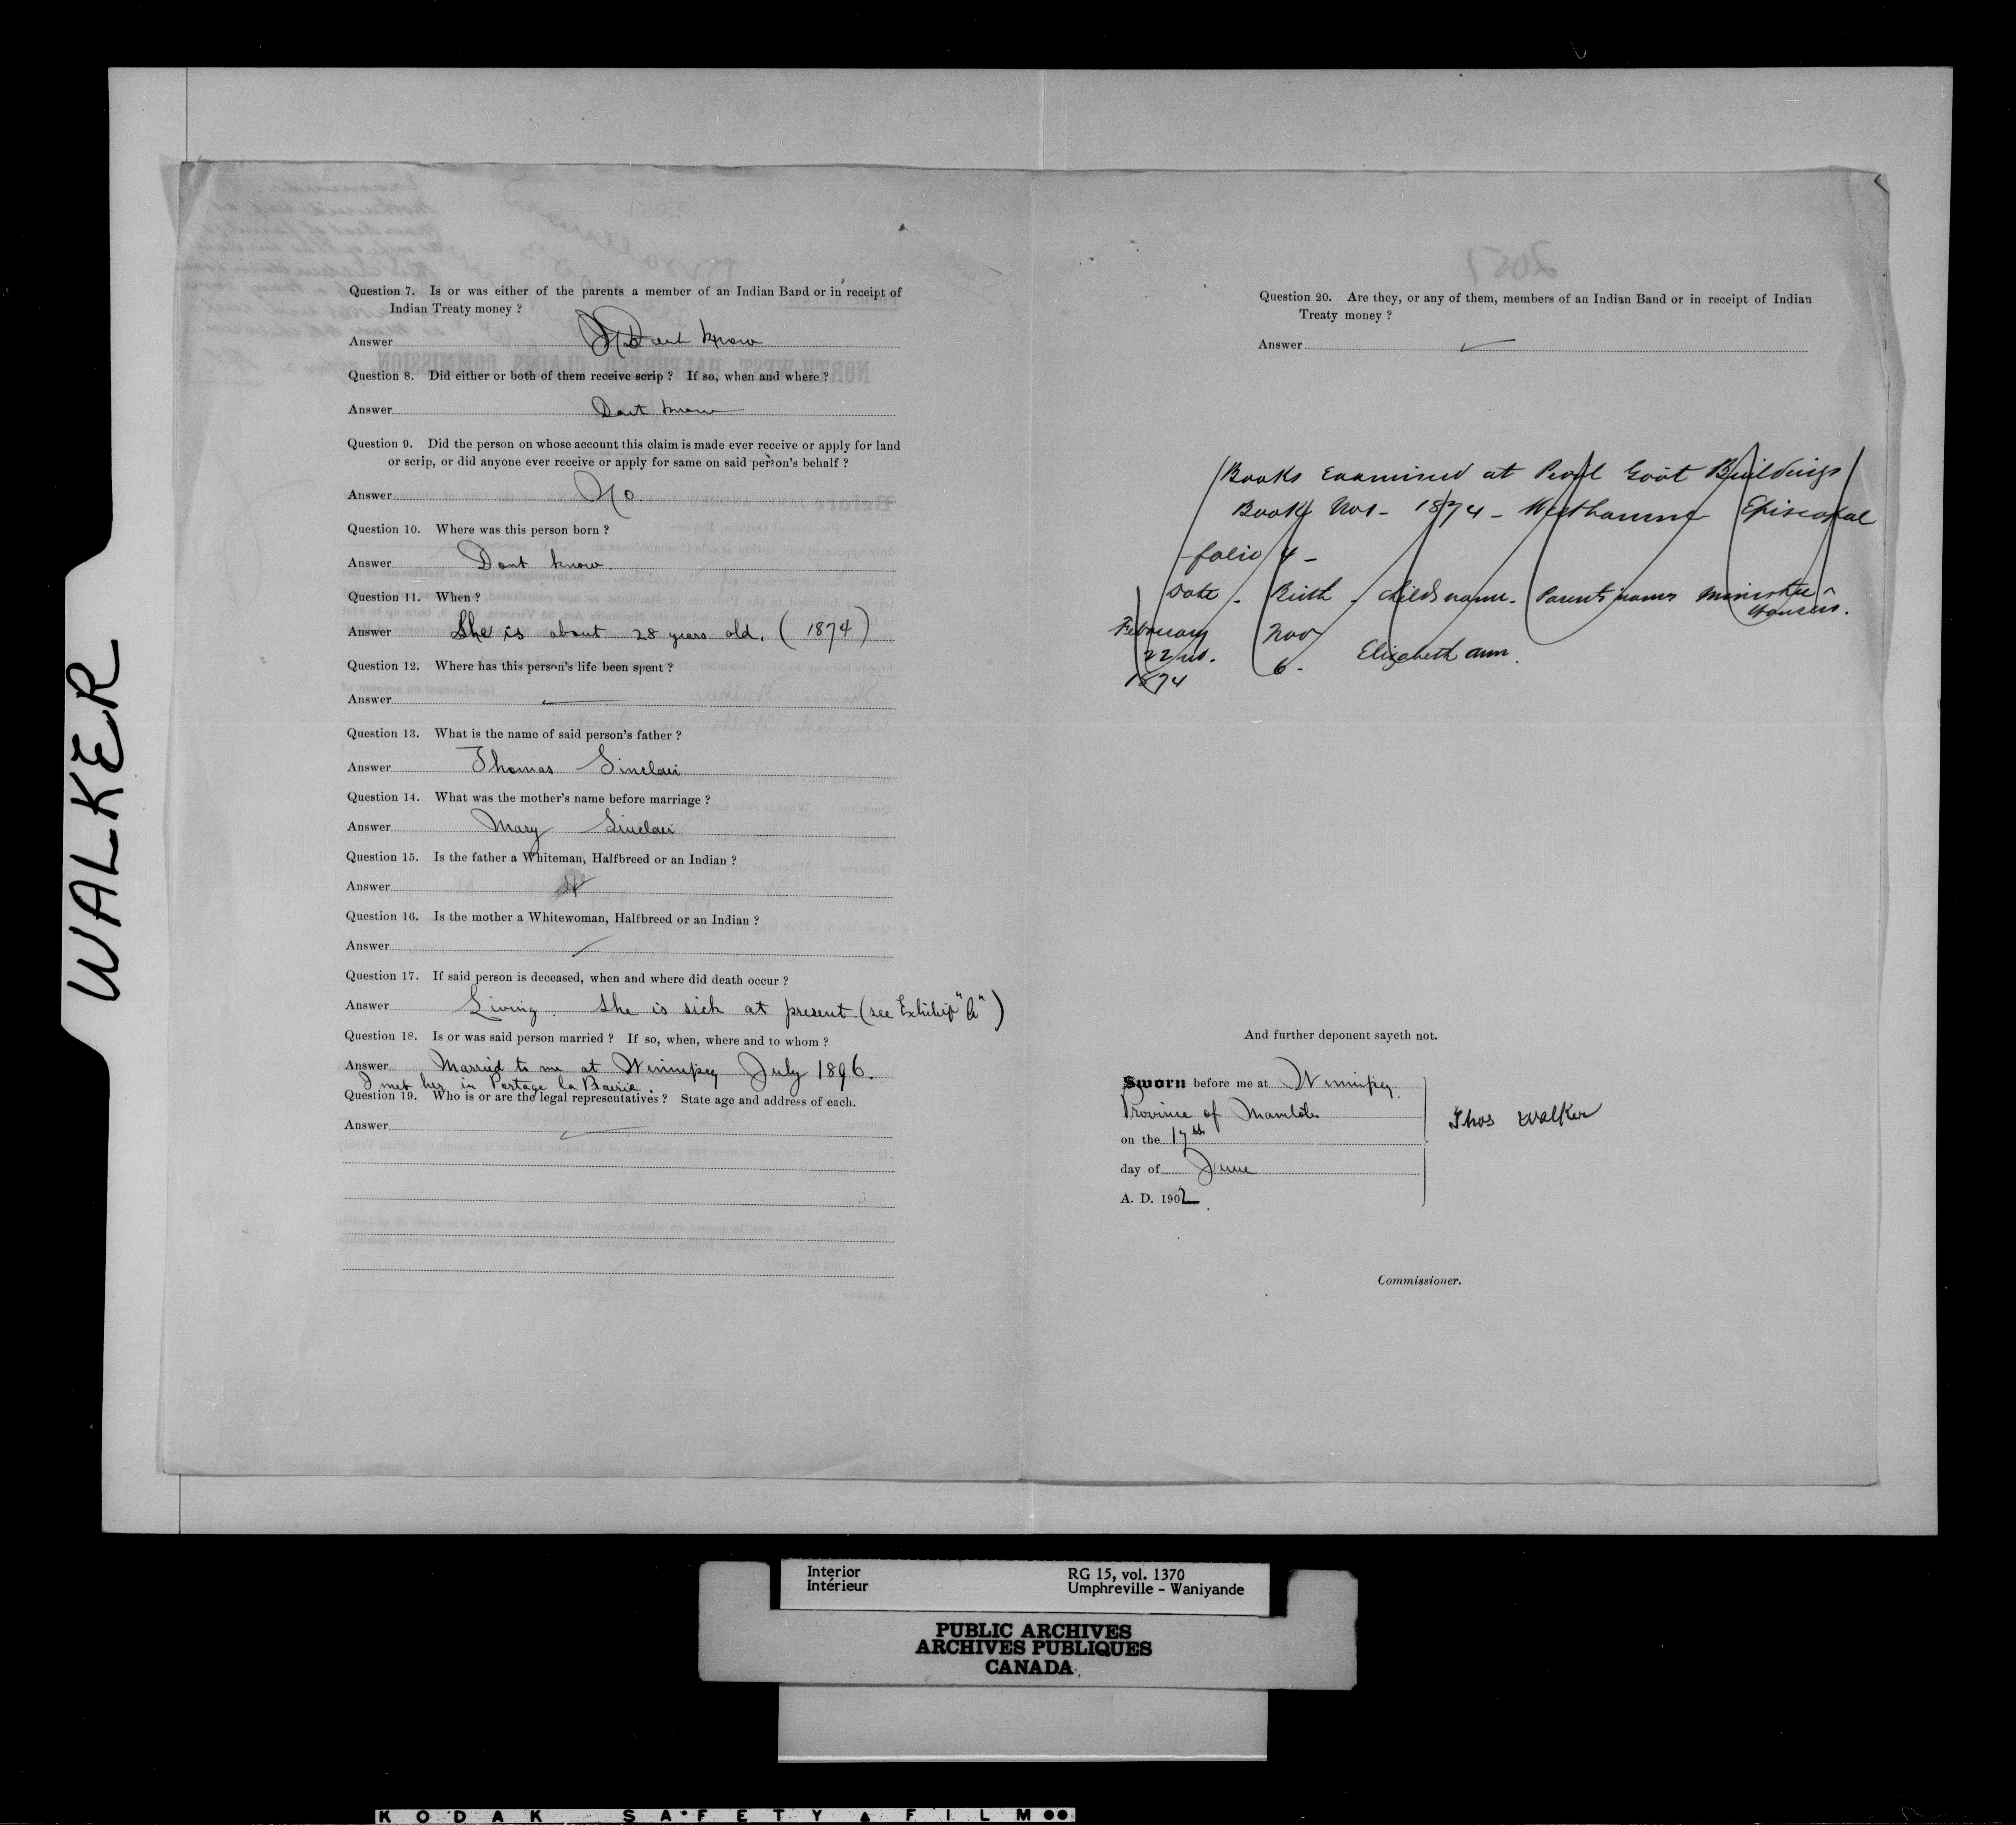 WALKER
Question 7. Is or was either of the parents a member of an Indian Band or in receipt of
Indian Treaty money ?
Answer Dont know
Question 8. Did either or both of them receive scrip ? If so, when and where ?
Answer Dont know
Question 9. Did the person on whose account this claim is made ever receive or apply for land
or scrip, or did anyone ever receive or apply for same on said person's behalf ?
Answer No
Question 10. Where was this person born ?
Answer Dont know.
Question 11. When ?
Answer She is about 28 years old. (1874)
Question 12. Where has this person's life been spent ?
Answer
Question 13. What is the name of said person's father ?
Answer Thomas Sinclair
Question 14. What was the mother's name before marriage ?
Answer Mary Sinclair
Question 15. Is the father a Whiteman, Halfbreed or an Indian ?
Answer
Question 16. Is the mother a Whitewoman, Halfbreed or an Indian ?
Answer
Question 17. If said person is deceased, when and where did death occur ?
Answer Living. She is sick at present (see Exhibit "A")
Question 18. Is or was said person married ? If so, when, where and to whom ?
Answer Married to me at Winnipeg July 1896.
I met her in Portage la Prairie.
Question 19. Who is or are the legal representatives ? State age and address of each.
Answer
2051
Question 20. Are they, or any of them, members of an Indian Band or in receipt of Indian
Treaty money ?
Answer
Books Examined at Govt Buildings
Book 1874 - Episcopal
folio 4 -
Date - Birth - Childs name - Parents names
February Nov
22nd. 6 - Elizabeth Ann.
1874
And further deponent sayeth not.
Sworn before me at Winnipeg
Province of Manitoba
on the 17th
day of June
A. D. 1902
Thos Walker
Commissioner.
Interior
Intérieur
RG 15, vol. 1370
Umphreville - Waniyande
PUBLIC ARCHIVES
ARCHIVES PUBLIQUES
CANADA
KODAK SAFETY FILM